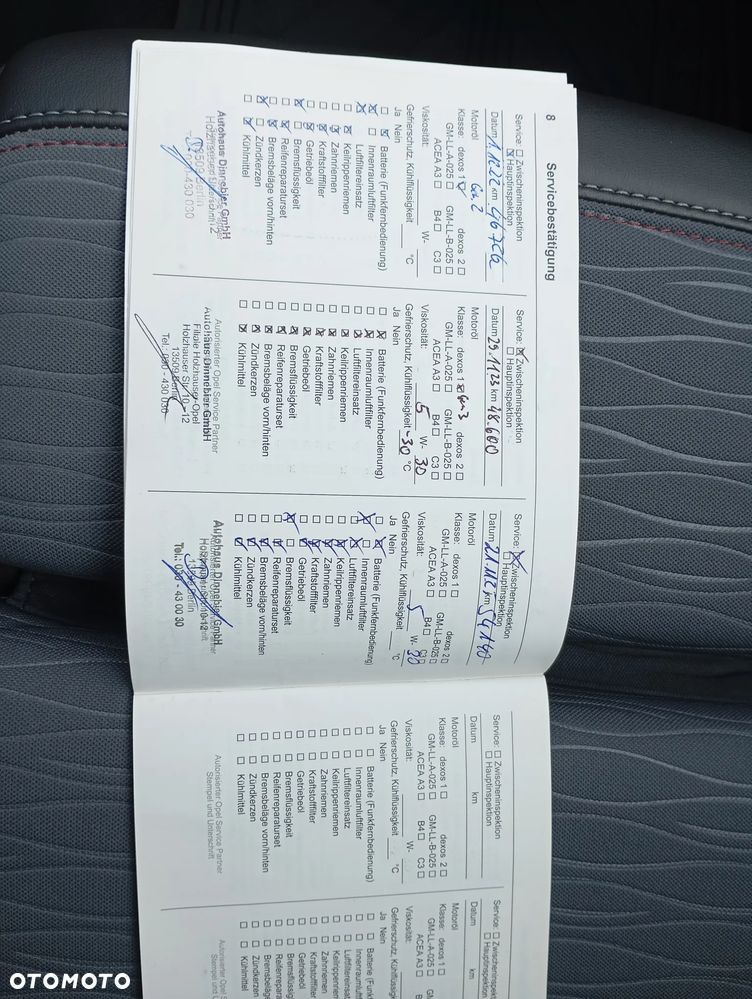 8 Servicebestätigung
Service: ☐ Zwischeninspektion
☒ Hauptinspektion
Datum 1.12.22 km 46726
Motoröl
Klasse: dexos 1 Gen 2 dexos 2 ☐
GM-LL-A-025 ☐ GM-LL-B-025 ☐
ACEA A3 ☐ B4 ☐ C3 ☐
Viskosität: W-
Gefrierschutz, Kühlflüssigkeit °C
Ja Nein
☐ ☒ Batterie (Funkfernbedienung)
☒ ☐ Innenraumluftfilter
☒ ☐ Luftfiltereinsatz
☐ ☒ Keilrippenriemen
☐ ☒ Zahnriemen
☐ ☒ Kraftstofffilter
☐ ☒ Getriebeöl
☒ ☐ Bremsflüssigkeit
☐ ☒ Reifenreparaturset
☐ ☒ Bremsbeläge vorn/hinten
☒ ☐ Zündkerzen
☐ ☒ Kühlmittel
Autohaus Dinnebier GmbH
13509 Berlin
430 030
Service: ☒ Zwischeninspektion
☐ Hauptinspektion
Datum 29.11.23 km 48.600
Motoröl
Klasse: dexos 1 ☒ G-3 dexos 2 ☐
GM-LL-A-025 ☐ GM-LL-B-025 ☐
ACEA A3 ☐ B4 ☐ C3 ☐
Viskosität: 5 W- 30
Gefrierschutz, Kühlflüssigkeit -30 °C
Ja Nein
☐ ☒ Batterie (Funkfernbedienung)
☐ ☒ Innenraumluftfilter
☐ ☒ Luftfiltereinsatz
☐ ☒ Keilrippenriemen
☐ ☒ Zahnriemen
☐ ☒ Kraftstofffilter
☐ ☒ Getriebeöl
☐ ☒ Bremsflüssigkeit
☐ ☒ Reifenreparaturset
☐ ☒ Bremsbeläge vorn/hinten
☐ ☒ Zündkerzen
☐ ☒ Kühlmittel
Autorisierter Opel Service Partner
Autohaus Dinnebier GmbH
Filiale Holzhauser Opel
Holzhauser Str. 10-12
13509 Berlin
Tel.: 030 - 430 030
Service: ☒ Zwischeninspektion
☐ Hauptinspektion
Datum km 54140
Motoröl
Klasse: dexos 1 ☐ dexos 2 ☐
GM-LL-A-025 ☐ GM-LL-B-025 ☐
ACEA A3 ☐ B4 ☐
Viskosität: 5 W- 30
Gefrierschutz, Kühlflüssigkeit °C
Ja Nein
☐ ☒ Batterie (Funkfernbedienung)
☒ ☐ Innenraumluftfilter
☐ ☒ Luftfiltereinsatz
☐ ☒ Keilrippenriemen
☐ ☒ Zahnriemen
☐ ☒ Kraftstofffilter
☐ ☒ Getriebeöl
☒ ☐ Bremsflüssigkeit
☐ ☒ Reifenreparaturset
☐ ☒ Bremsbeläge vorn/hinten
☐ ☒ Zündkerzen
☐ ☒ Kühlmittel
Autohaus Dinnebier GmbH
Tel.: 030 - 43 00 30
Service: ☐ Zwischeninspektion
☐ Hauptinspektion
Datum km
Motoröl
Klasse: dexos 1 ☐ dexos 2 ☐
GM-LL-A-025 ☐ GM-LL-B-025 ☐
ACEA A3 ☐ B4 ☐ C3 ☐
Viskosität: W-
Gefrierschutz, Kühlflüssigkeit °C
Ja Nein
☐ ☐ Batterie (Funkfernbedienung)
☐ ☐ Innenraumluftfilter
☐ ☐ Luftfiltereinsatz
☐ ☐ Keilrippenriemen
☐ ☐ Zahnriemen
☐ ☐ Kraftstofffilter
☐ ☐ Getriebeöl
☐ ☐ Bremsflüssigkeit
☐ ☐ Reifenreparaturset
☐ ☐ Bremsbeläge vorn/hinten
☐ ☐ Zündkerzen
☐ ☐ Kühlmittel
Autorisierter Opel Service Partner
Stempel und Unterschrift
Service: ☐ Zwischeninspektion
☐ Hauptinspektion
Datum km
Motoröl
Klasse: dexos 1 ☐
GM-LL-A-025 ☐
ACEA A3 ☐
Viskosität:
Gefrierschutz, Kühlflüssig
Ja Nein
☐ ☐ Batterie (Funkfern
☐ ☐ Innenraumluftfilter
☐ ☐ Luftfiltereinsatz
☐ ☐ Keilrippenriemen
☐ ☐ Zahnriemen
☐ ☐ Kraftstofffilter
☐ ☐ Getriebeöl
☐ ☐ Bremsflüssig
☐ ☐ Reifenrepara
☐ ☐ Bremsbeläge
☐ ☐ Zündkerzen
☐ ☐ Kühlmittel
Autorisierter Opel
Stempel und
OTOMOTO